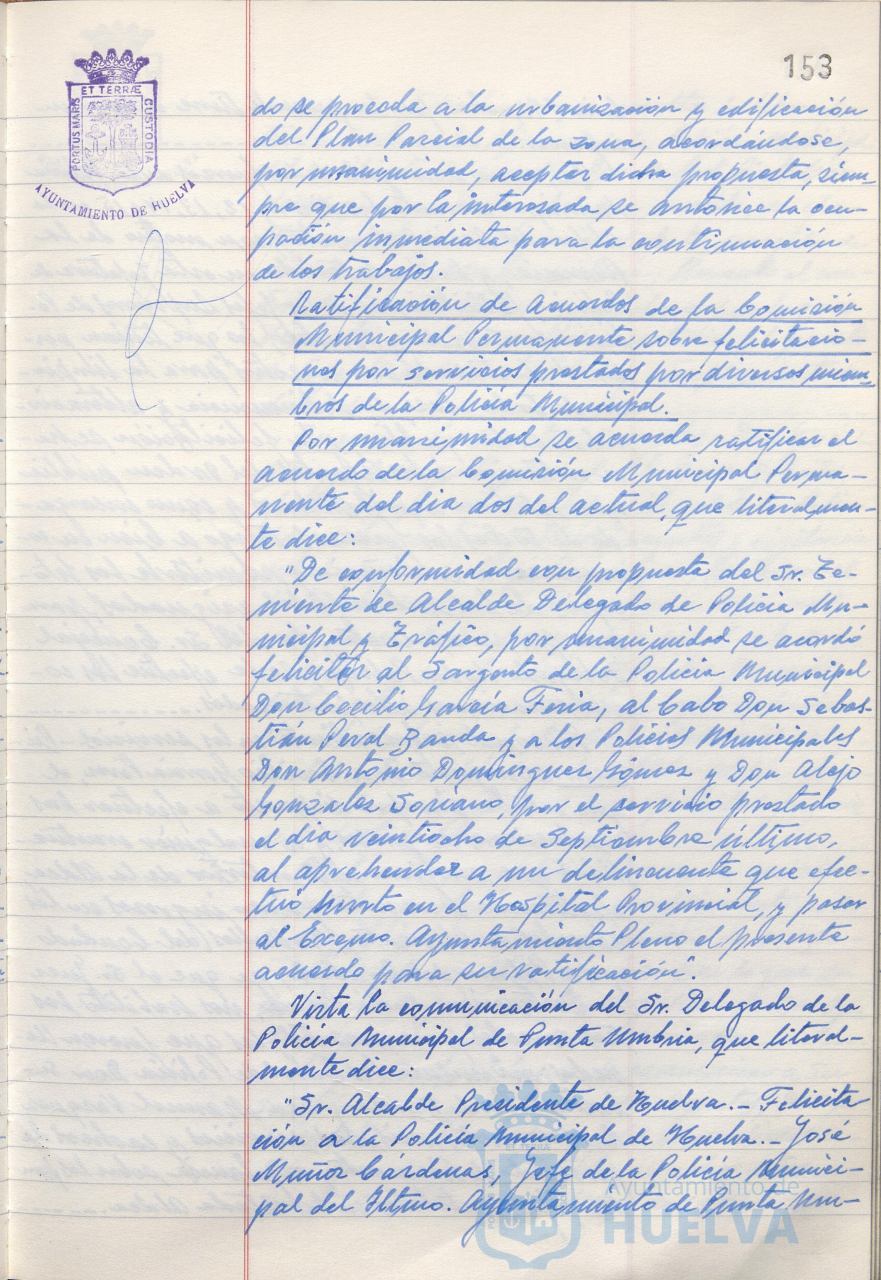 153
PORTUS MARIS ET TERRÆ CUSTODIA
AYUNTAMIENTO DE HUELVA
do se proceda a la urbanización y edificación
del Plan Parcial de la zona, acordándose,
por unanimidad, aceptar dicha propuesta, siem-
pre que por la interesada se autorice la ocu-
pación inmediata para la continuación
de los trabajos.
Ratificación de acuerdos de la Comisión
Municipal Permanente sobre felicitacio-
nes por servicios prestados por diversos miem-
bros de la Policía Municipal.
Por unanimidad se acuerda ratificar el
acuerdo de la Comisión Municipal Perma-
nente del dia dos del actual, que literalmen-
te dice:
"De conformidad con propuesta del Sr. Te-
niente de Alcalde Delegado de Policia Mu-
nicipal y Tráfico, por unanimidad se acordó
felicitar al Sargento de la Policia Municipal
Don Cecilio García Feria, al Cabo Don Sebas-
tián Peral Banda y a los Policías Municipales
Don Antonio Dominguez Gómez y Don Alejo
Gonzalez Soriano, por el servicio prestado
el dia veintiocho de Septiembre último,
al aprehender a un delincuente que efec-
tuó hurto en el Hospital Provincial, y pasar
al Excmo. Ayuntamiento Pleno el presente
acuerdo para su ratificación".
Vista la comunicación del Sr. Delegado de la
Policía Municipal de Punta Umbria, que literal-
mente dice:
"Sr. Alcalde Presidente de Huelva.- Felicita
ción a la Policía Municipal de Huelva.- José
Muñoz Cárdenas, Jefe de la Policía Munici-
pal del Iltmo. Ayuntamiento de Punta Um-
Ayuntamiento de
HUELVA